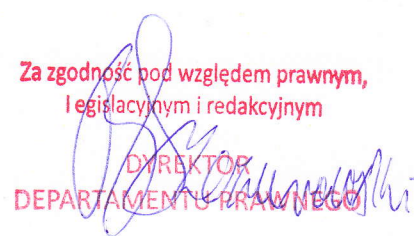 Za zgodność pod względem prawnym,
legislacyjnym i redakcyjnym
DYREKTOR
DEPARTAMENTU PRAWNEGO